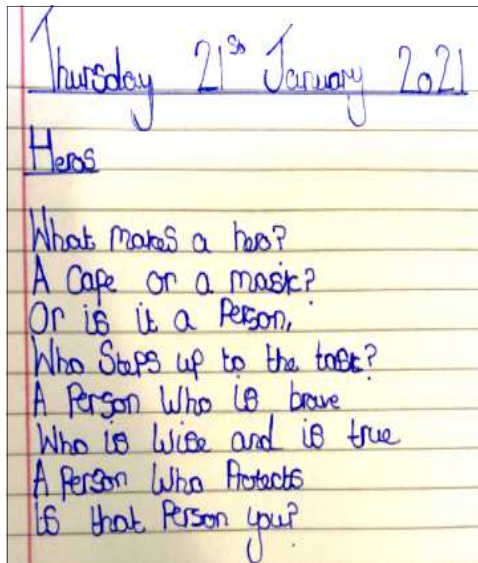 Thursday 21st January 2021
Heros
What makes a hero?
A Cape or a mask?
Or is it a Person,
Who Steps up to the task?
A Person Who is brave
Who is Wise and is true
A Person Who Protects
is that Person you?